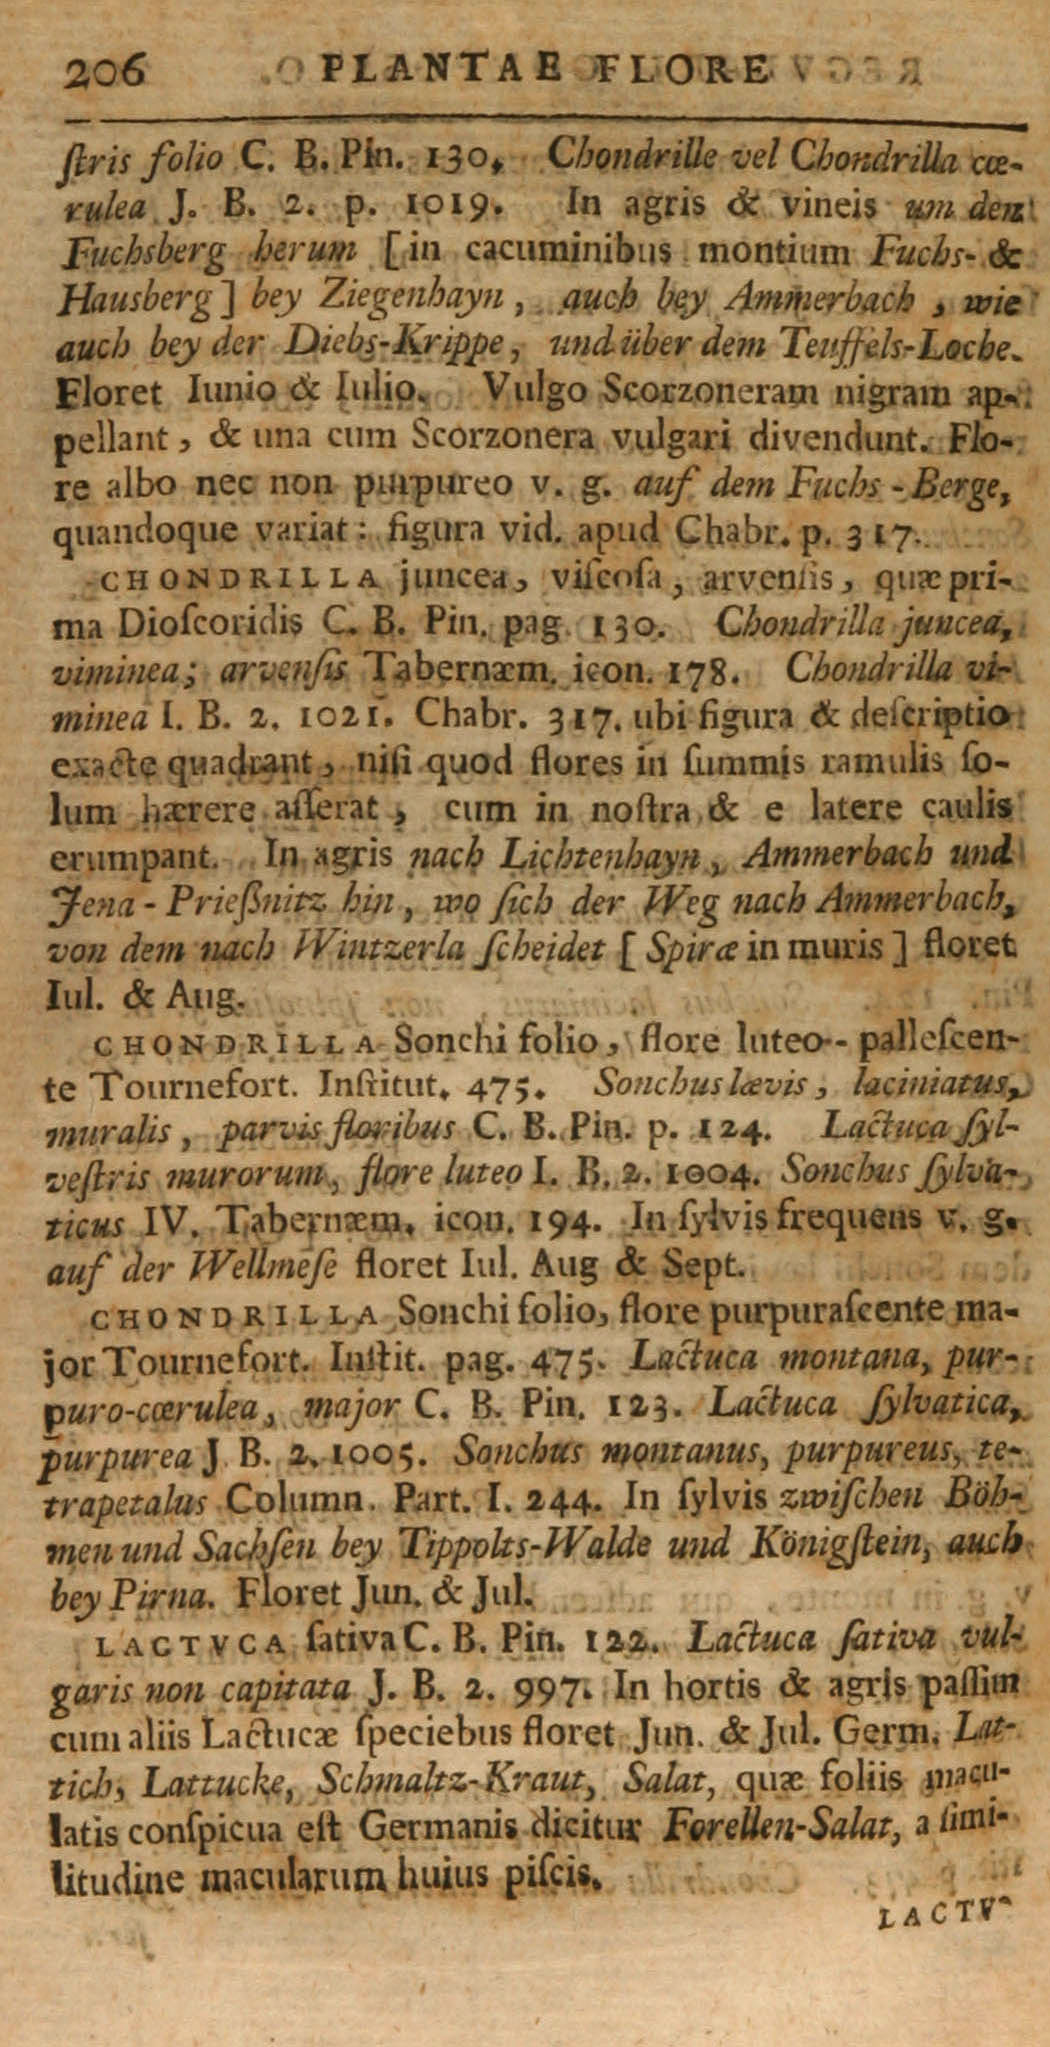 206 PLANTAE FLORE
ſtris folio C. B. Pin. 130. Chondrille vel Chondrilla cœ-
rulea J. B. 2. p. 1019. In agris & vineis um den
Fuchsberg herum [in cacuminibus montium Fuchs- &
Hausberg] bey Ziegenhayn, auch bey Ammerbach, wie
auch bey der Diebs-Krippe, und über dem Teuffels-Loche.
Floret Iunio & Iulio. Vulgo Scorzoneram nigram ap-
pellant, & una cum Scorzonera vulgari divendunt. Flo-
re albo nec non purpureo v. g. auf dem Fuchs-Berge,
quandoque variat: figura vid. apud Chabr. p. 317.
CHONDRILLA juncea, viſcoſa, arvenſis, quæ pri-
ma Dioſcoridis C. B. Pin. pag. 130. Chondrilla juncea,
viminea; arvenſis Tabernæm. icon. 178. Chondrilla vi-
minea I. B. 2. 1021. Chabr. 317. ubi figura & deſcriptio
exacte quadrant, niſi quod flores in ſummis ramulis ſo-
lum hærere aſſerat, cum in noſtra & e latere caulis
erumpant. In agris nach Lichtenhayn, Ammerbach und
Jena-Prießnitz hin, wo ſich der Weg nach Ammerbach,
von dem nach Wintzerla ſcheidet [Spiræ in muris] floret
Iul. & Aug.
CHONDRILLA Sonchi folio, flore luteo-palleſcen-
te Tournefort. Inſtitut. 475. Sonchus lævis, laciniatus,
muralis, parvis floribus C. B. Pin. p. 124. Lactuca ſyl-
veſtris murorum, flore luteo I. B. 2. 1004. Sonchus ſylva-
ticus IV. Tabernæm. icon. 194. In ſylvis frequens v. g.
auf der Wellmeſe floret Iul. Aug & Sept.
CHONDRILLA Sonchi folio, flore purpuraſcente ma-
jor Tournefort. Inſtit. pag. 475. Lactuca montana, pur-
puro-cœrulea, major C. B. Pin. 123. Lactuca ſylvatica,
purpurea J. B. 2. 1005. Sonchus montanus, purpureus, te-
trapetalus Column. Part. I. 244. In ſylvis zwiſchen Böh-
men und Sachſen bey Tippolts-Walde und Königſtein, auch
bey Pirna. Floret Jun. & Jul.
LACTVCA ſativa C. B. Pin. 122. Lactuca ſativa vul-
garis non capitata J. B. 2. 997. In hortis & agris paſſim
cum aliis Lactucæ ſpeciebus floret Jun. & Jul. Germ. Lat-
tich, Lattucke, Schmaltz-Kraut, Salat, quæ foliis macu-
latis conſpicua eſt Germanis dicitur Forellen-Salat, a ſimi-
litudine macularum huius piſcis.
LACTV-